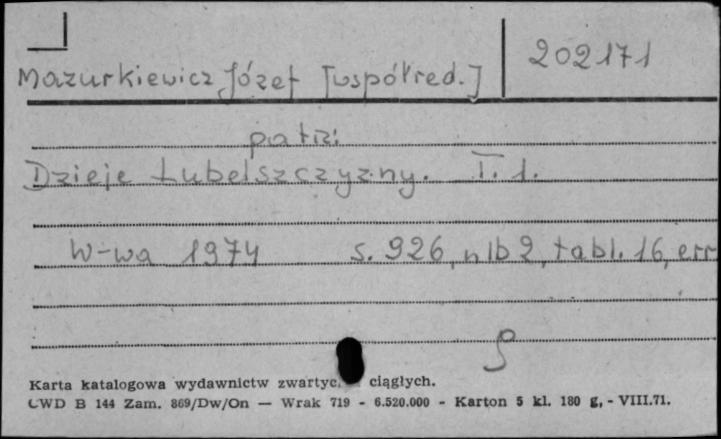 202171
Mazurkiewicz Józef [współred.]
patrz:
Dzieje Lubelszczyzny. T. 1.
W-wa 1974 s. 926, nlb 2, tabl. 16, err
Karta katalogowa wydawnictw zwartyc. ciągłych.
CWD B 144 Zam. 869/Dw/On — Wrak 719 - 6.520.000 - Karton 5 kl. 180 g, - VIII.71.